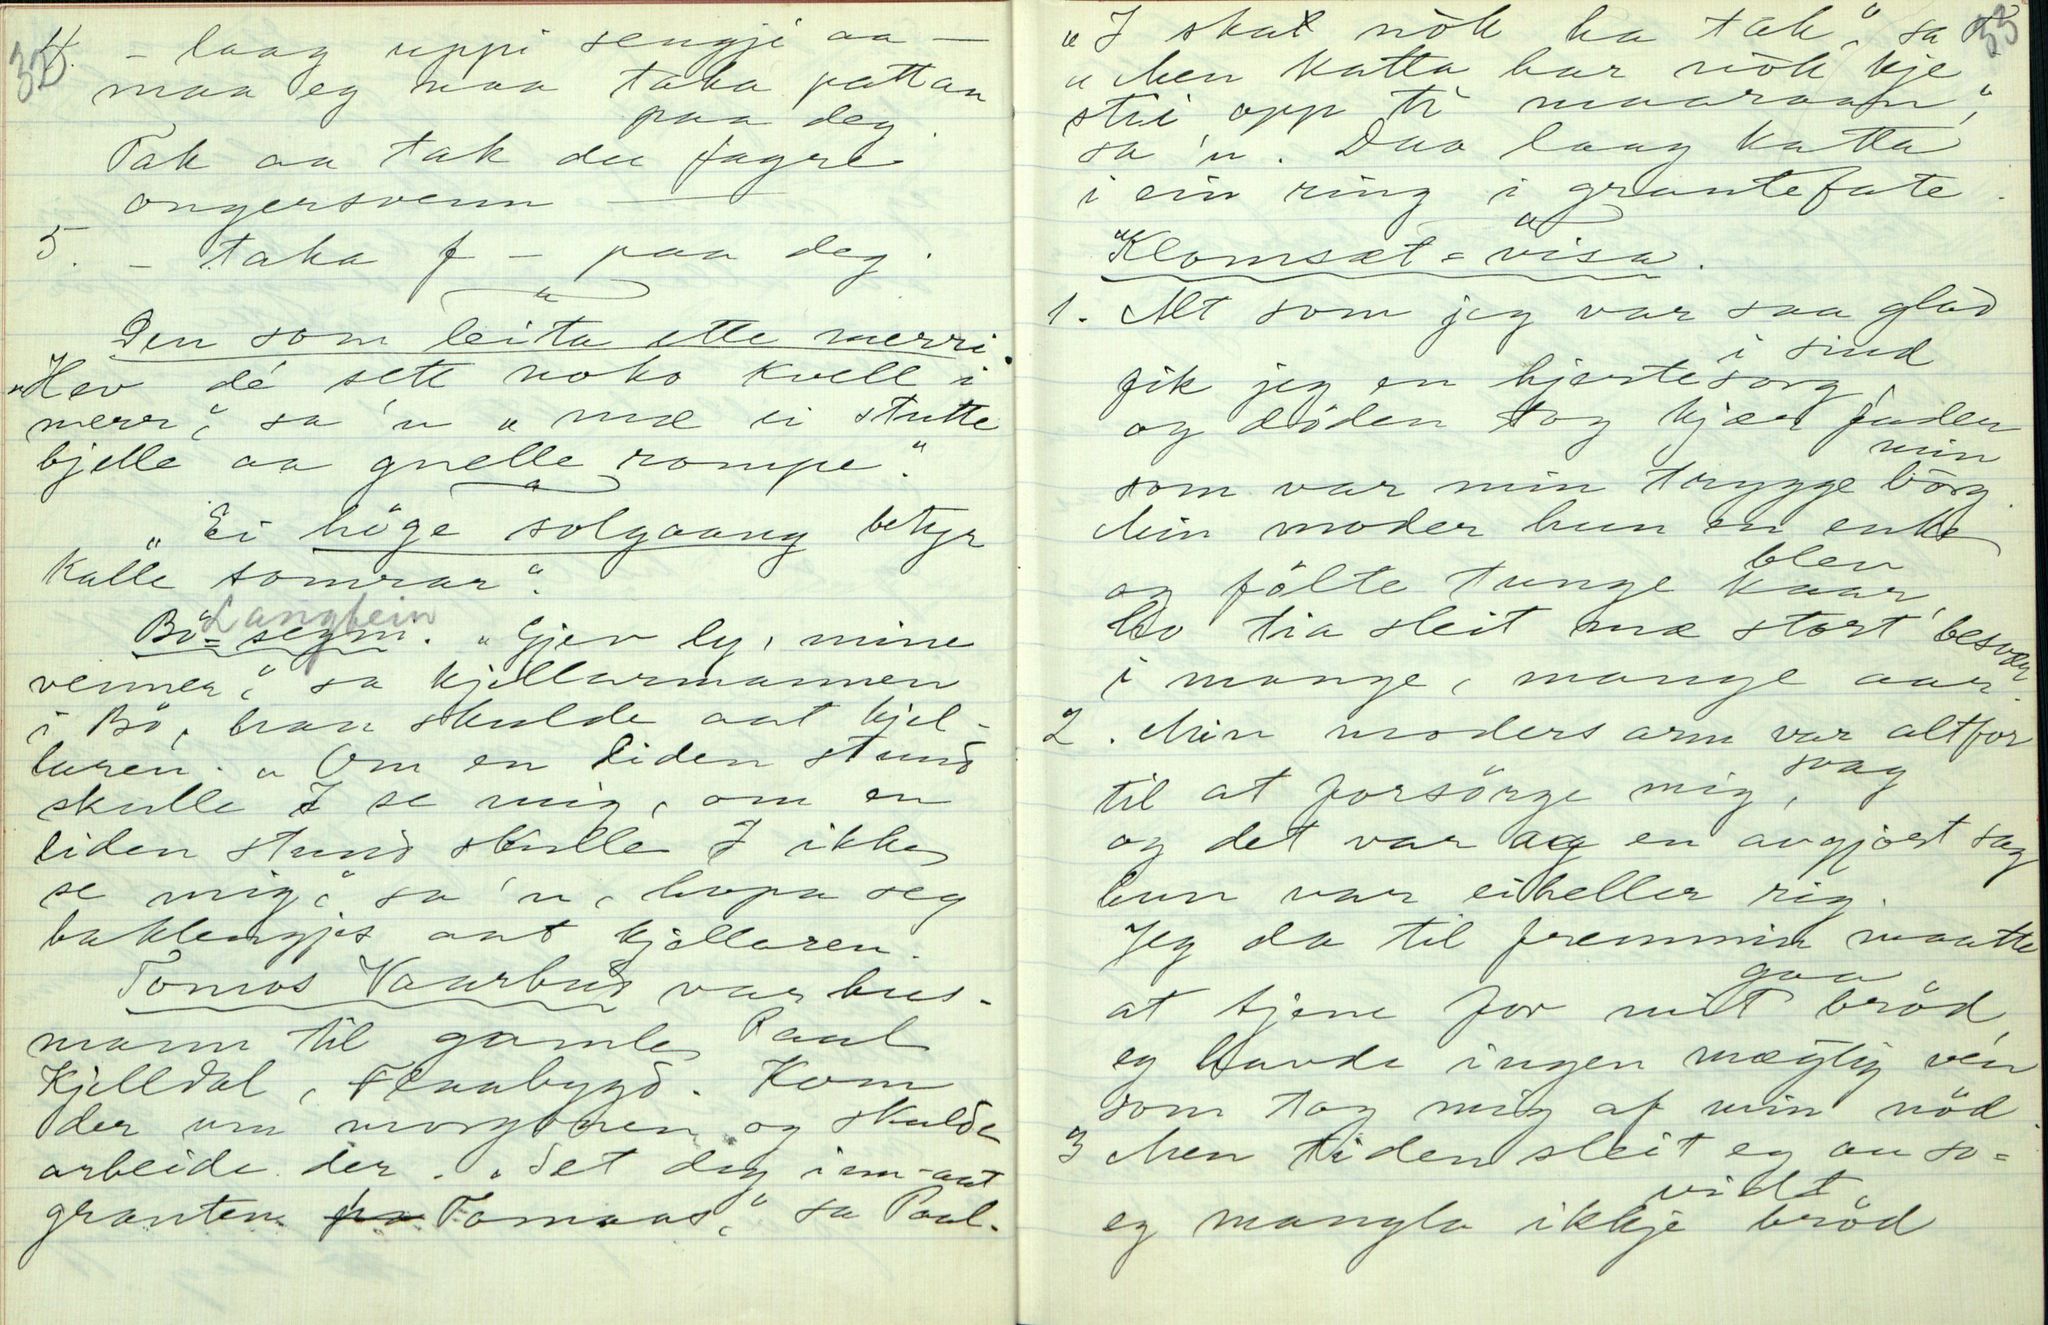 32
4. – laag uppi sengji aa –
maa eg naa taka pattan
paa deg.
Tak aa tak du fagre
ongersvenn –
5. – taka f – paa deg.
Den som leita ette merri.
"Hev dé sett noko kvell i
merr," sa 'n "mæ ei stutte
bjelle aa gnelle rompe".
"Ei höge solgaang betyr
kalle somrar".
Langbein
Bö-segn. "Gjev ly, mine
venner," sa kjellarmannen
i Bö, han skulde aat kjel-
laren. "Om en liden stund
skulle I se mig, om en
liden stund skulle I ikke
se mig," sa 'n, hopa seg
baklengjis aat kjellaren.
Tomos Vaarbus var hus-
mann til gamle Paal
Kjelldal, Flaabygd. Kom
der um morgonen og skulde
arbeide der. "Set deg inn-aat
granten Tomaas," sa Paal.
33
"I skal nök ha tak," sa T.
"Men katta har nök kje
stii opp ti maaraan,"
sa 'n. Daa laag katta
i ein ring i grautefate.
"Klomsæt-visa".
1. Alt som jeg var saa glad
i sind
fik jeg en hjertesorg,
og döden tog kjær fader
min
som var min trygge borg
Min moder hun en enke
blev
og fölte tunge kaar,
ho tia sleit mæ stort besvær
i mange, mange aar.
2. Min moders arm var altfor
svag
til at forsörge mig,
og det var og en avgjort sag
hun var eiheller rig.
Jeg da til fremmin maatte
gaa
at tjene for mit bröd,
eg havde ingen mægtig vén
som tog mig af min nöd.
3 Men tiden sleit eg au so-
vidt,
eg mangla ikkje bröd